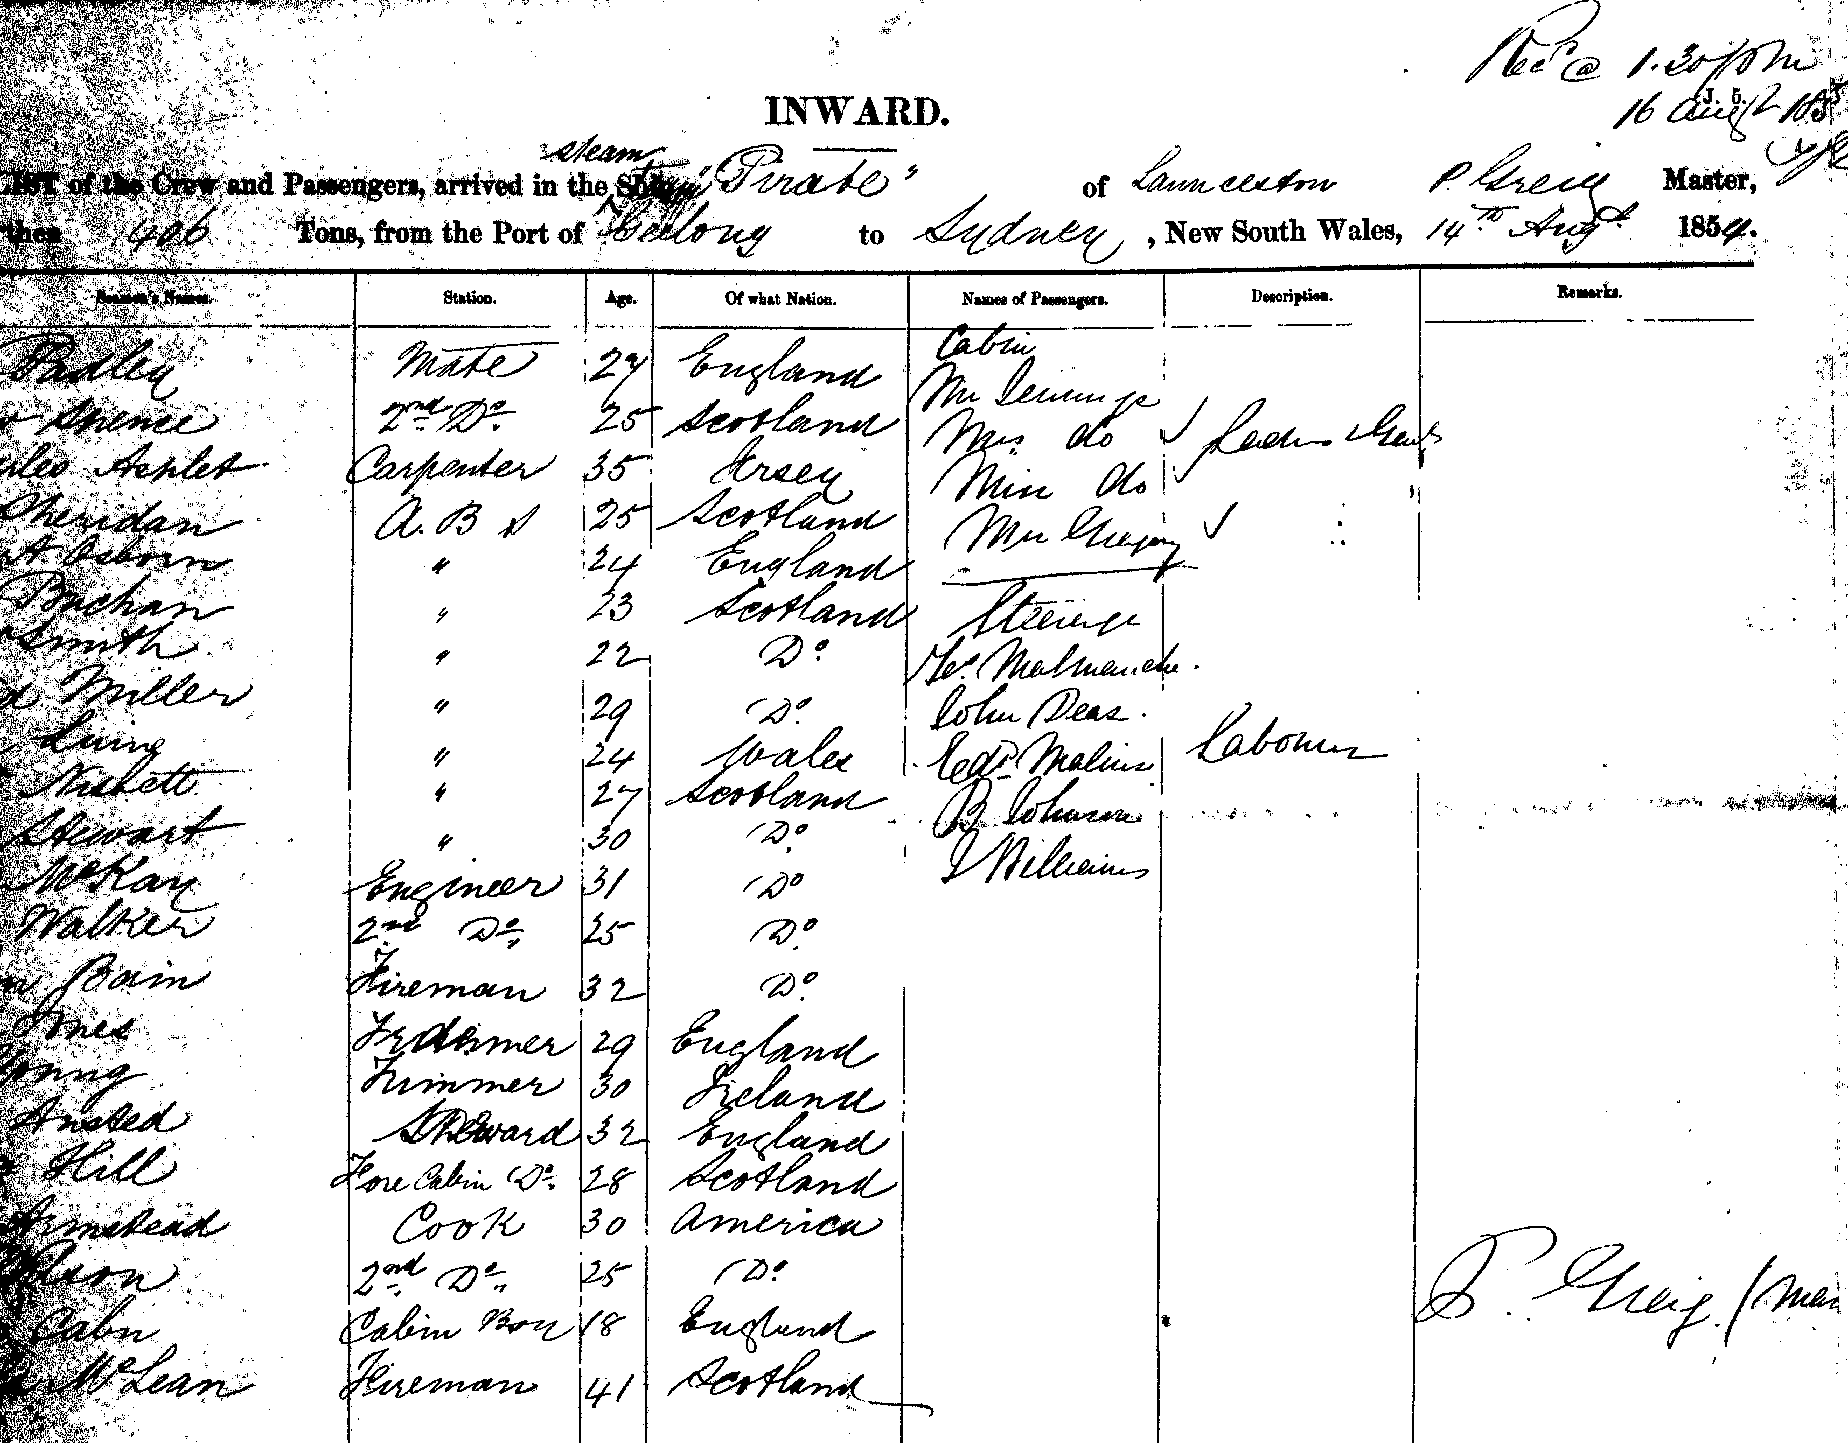 Recd @ 1.30 pm
16 Augt 185
INWARD.
steam
LIST of the Crew and Passengers, arrived in the Ship "Pirate" of Launceston P. Greig Master,
then 406 Tons, from the Port of Geelong to Sydney, New South Wales, 14th Augt 1854.
Seamen's Names. Station. Age. Of what Nation. Names of Passengers. Description. Remarks.
Cabin
Padley Mate 27 England Mr Jennings
Spence 2nd Do 25 Scotland Mrs do Ladies & Gents
Ashlet Carpenter 35 Jersey Miss do
Sheridan A.B S 25 Scotland Mr Gregory
Osborn " 24 England
Buchan " 23 Scotland Steerage
Smith " 22 Do
Miller " 29 Do John Deas.
Living " 24 Wales Labourers
Nisbett " 27 Scotland B Johnson
Stewart " 30 Do J Williams
McKay Engineer 31 Do
Walker 2nd Do 25 Do
Bain Fireman 32 Do
Jones 29 England
Young Trimmer 30 Ireland
Ansted Steward 32 England
Hill Fore Cabin Do 28 Scotland
Armstead Cook 30 America
2nd Do 25 Do
P. Greig (Mas
Cabin Boy 18 England
McLean Fireman 41 Scotland